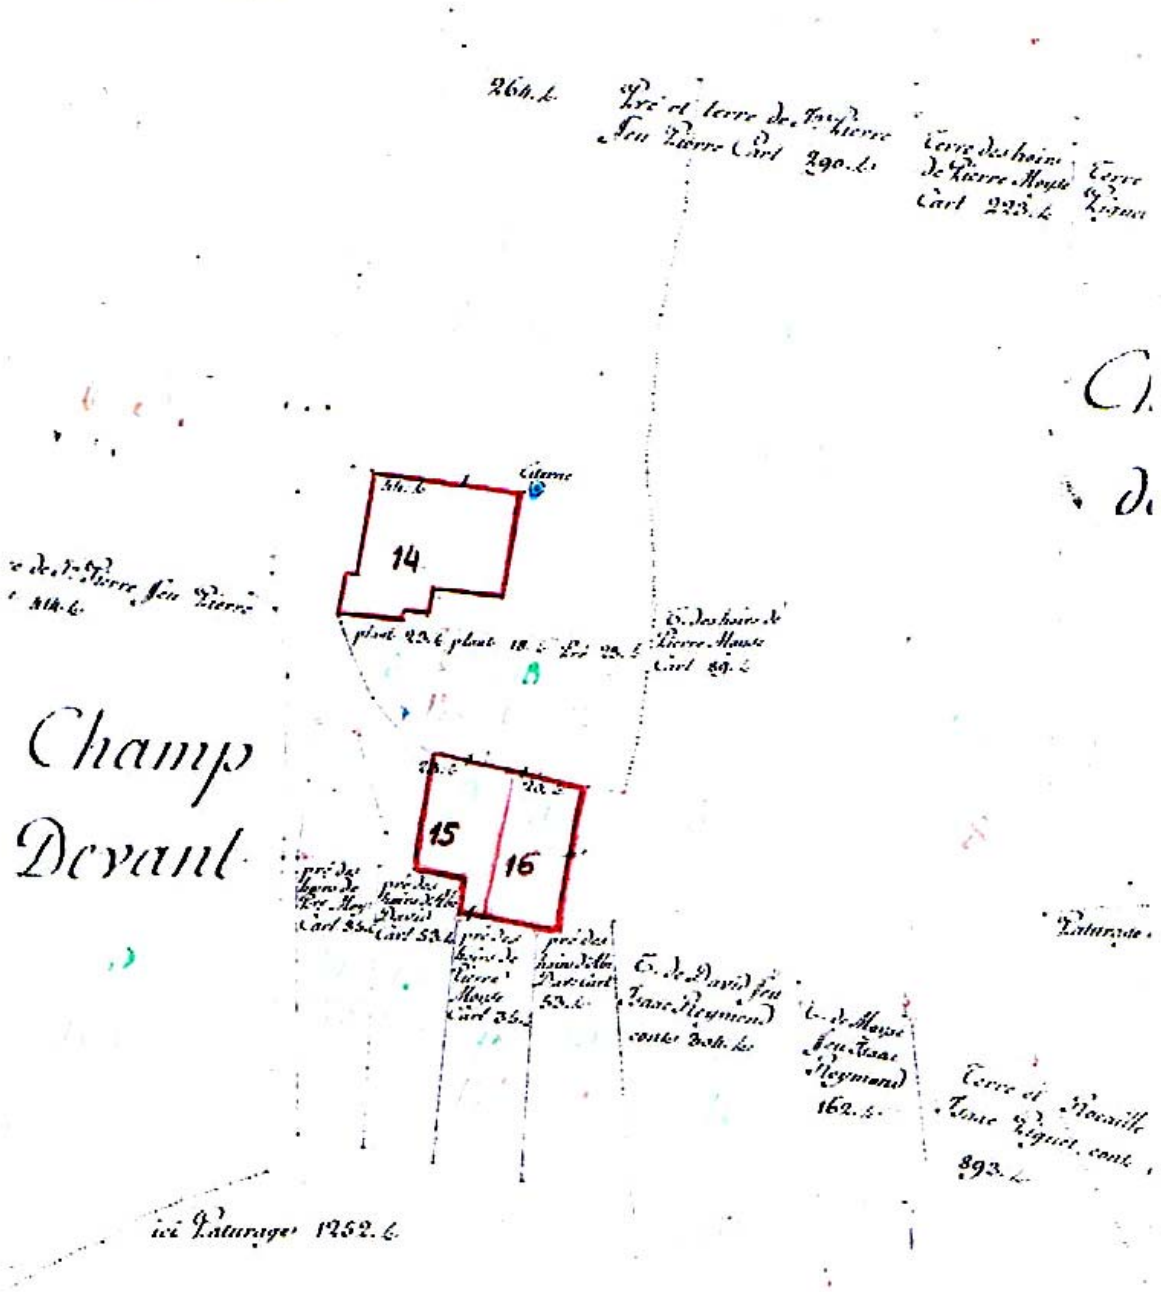 264. t.
Pré et terre de Jn Pierre
feu Pierre Carl 290. t.
Terre des hoirs
de Pierre Moyse
Carl 223. t.
Terre
Piguet
C
Citerne
44. t.
14
de Jn Pierre feu Pierre
414. t.
plant 23. t. plant 18. t. Pré 23. t.
T. des hoirs de
Pierre Moyse
Carl 89. t.
B
Champ
Devant
23. t.
23. t.
15
16
pré des
hoirs de
Pre Moy
Carl 35. t.
pré des
hoirs d'Abr
David
Carl 53. t.
pré des
hoirs de
Pierre
Moyse
Carl 35. t.
pré des
hoirs d'Abr
Dav. Carl
53. t.
T. de David feu
Isaac Reymond
conte 304. t.
T. de Moyse
feu Isaac
Reymond
162. t.
Paturage
Terre et Rocaille
Isaac Piguet, conte
893. t.
ici Paturage 1252. t.